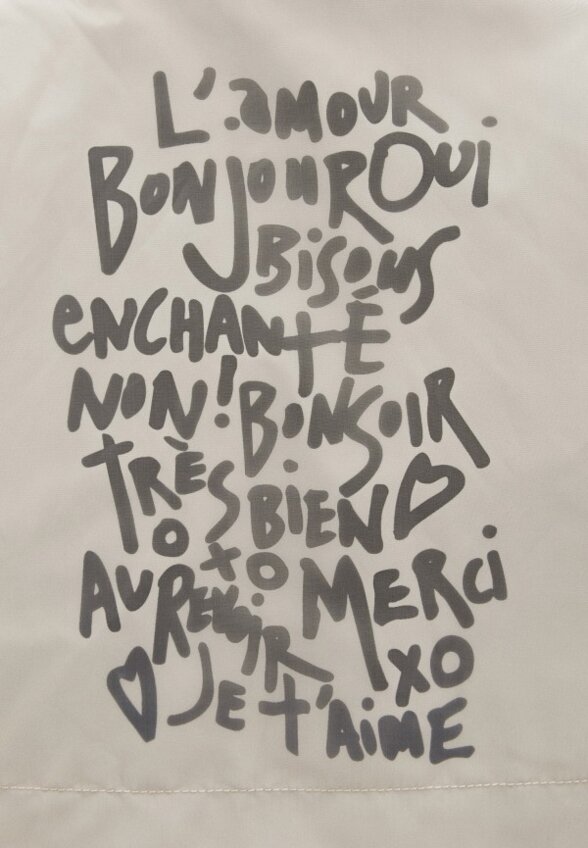 L'AMOUR
BONJOUR OUI
BISOUS
ENCHANTÉ
NON! BONSOIR
TRÈS BIEN
OXO
AU REVOIR MERCI
XO
JE T'AIME